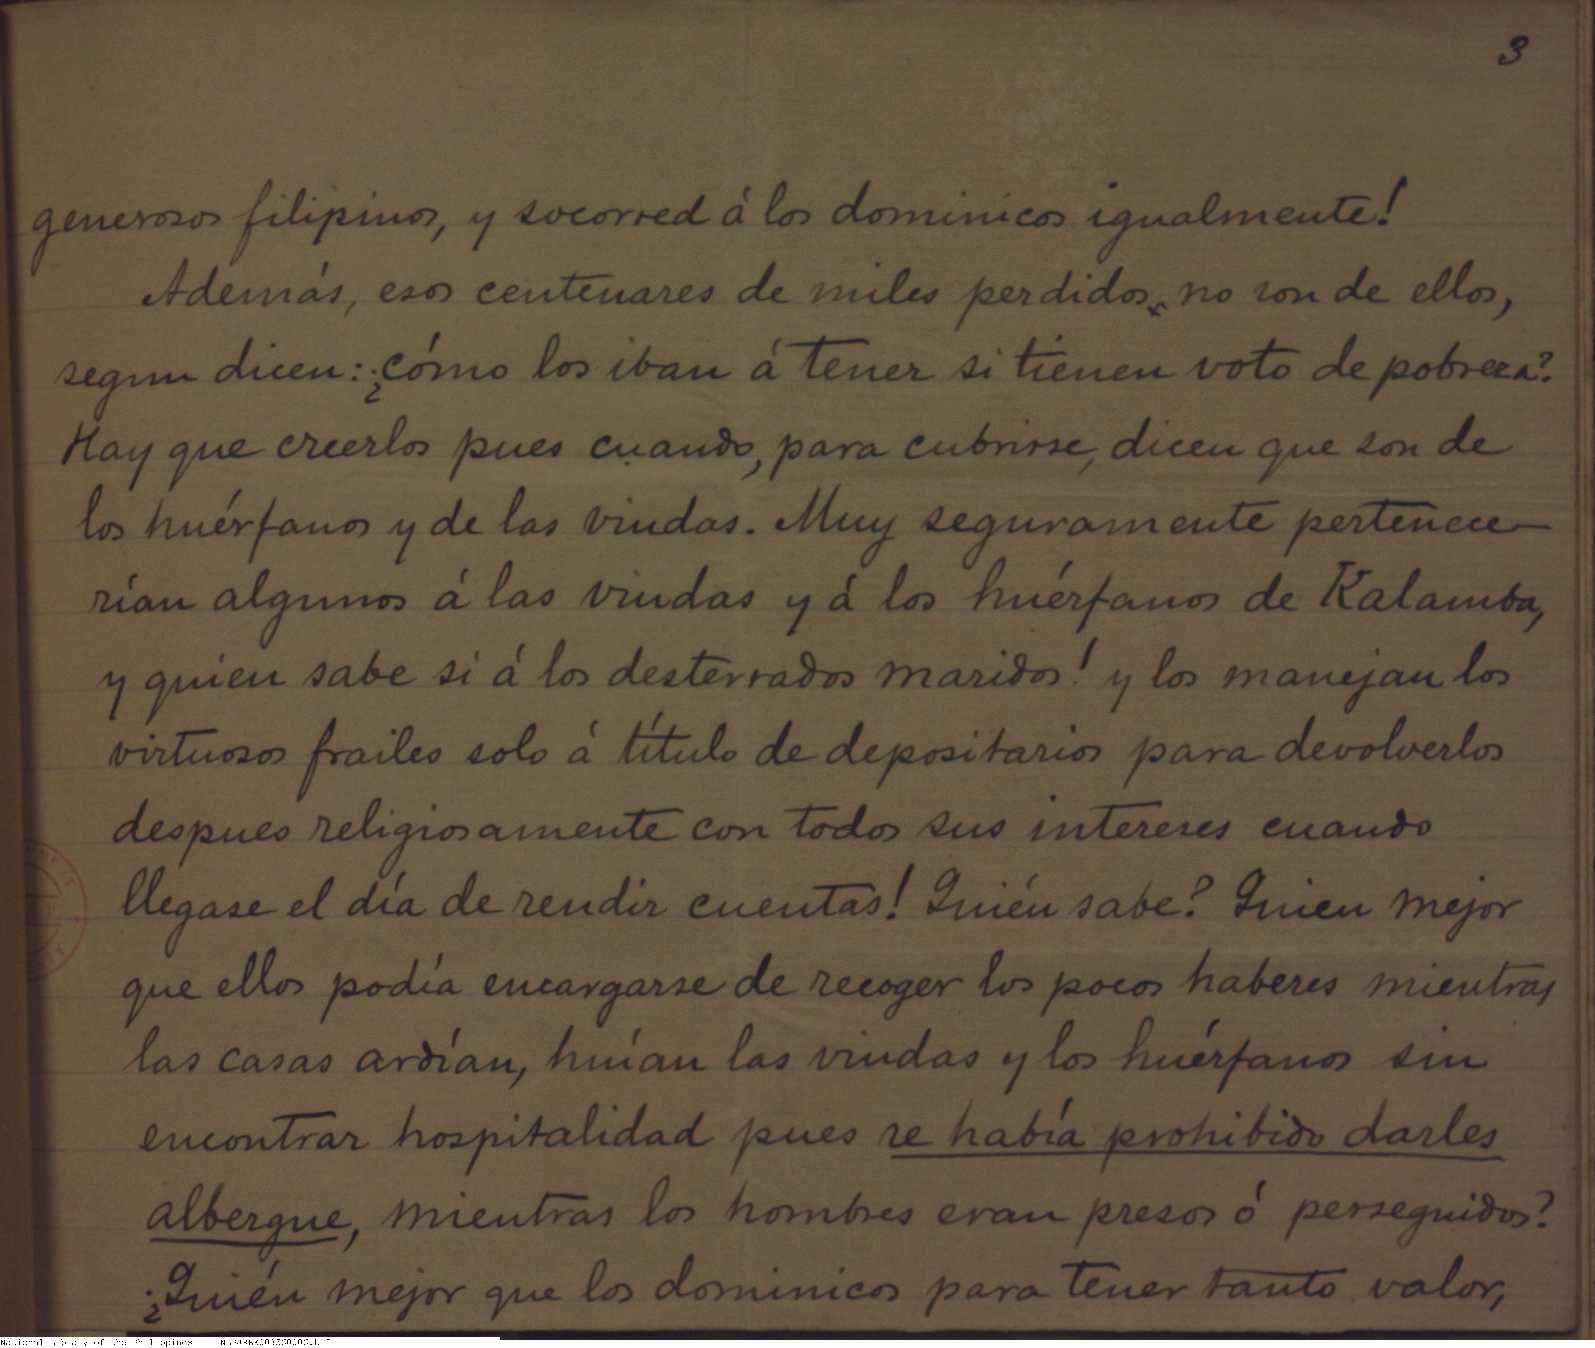 3
generosos filipinos, y socorred á los dominicos igualmente!
Además, esos centenares de miles perdidos, no son de ellos,
segun dicen: ¿cómo los iban á tener si tienen voto de pobreza?
Hay que creerlos pues cuando, para cubrirse, dicen que son de
los huérfanos y de las viudas. Muy seguramente pertenece-
rían algunos á las viudas y á los huérfanos de Kalamba,
y quien sabe si á los desterrados maridos! y los manejan los
virtuosos frailes solo á título de depositarios para devolverlos
despues religiosamente con todos sus intereses cuando
llegase el día de rendir cuentas! Quién sabe? Quien mejor
que ellos podía encargarse de recoger los pocos haberes mientras
las casas ardían, huían las viudas y los huérfanos sin
encontrar hospitalidad pues se había prohibido darles
albergue, mientras los hombres eran presos ó perseguidos?
¿Quién mejor que los dominicos para tener tanto valor,
National Library of the Philippines